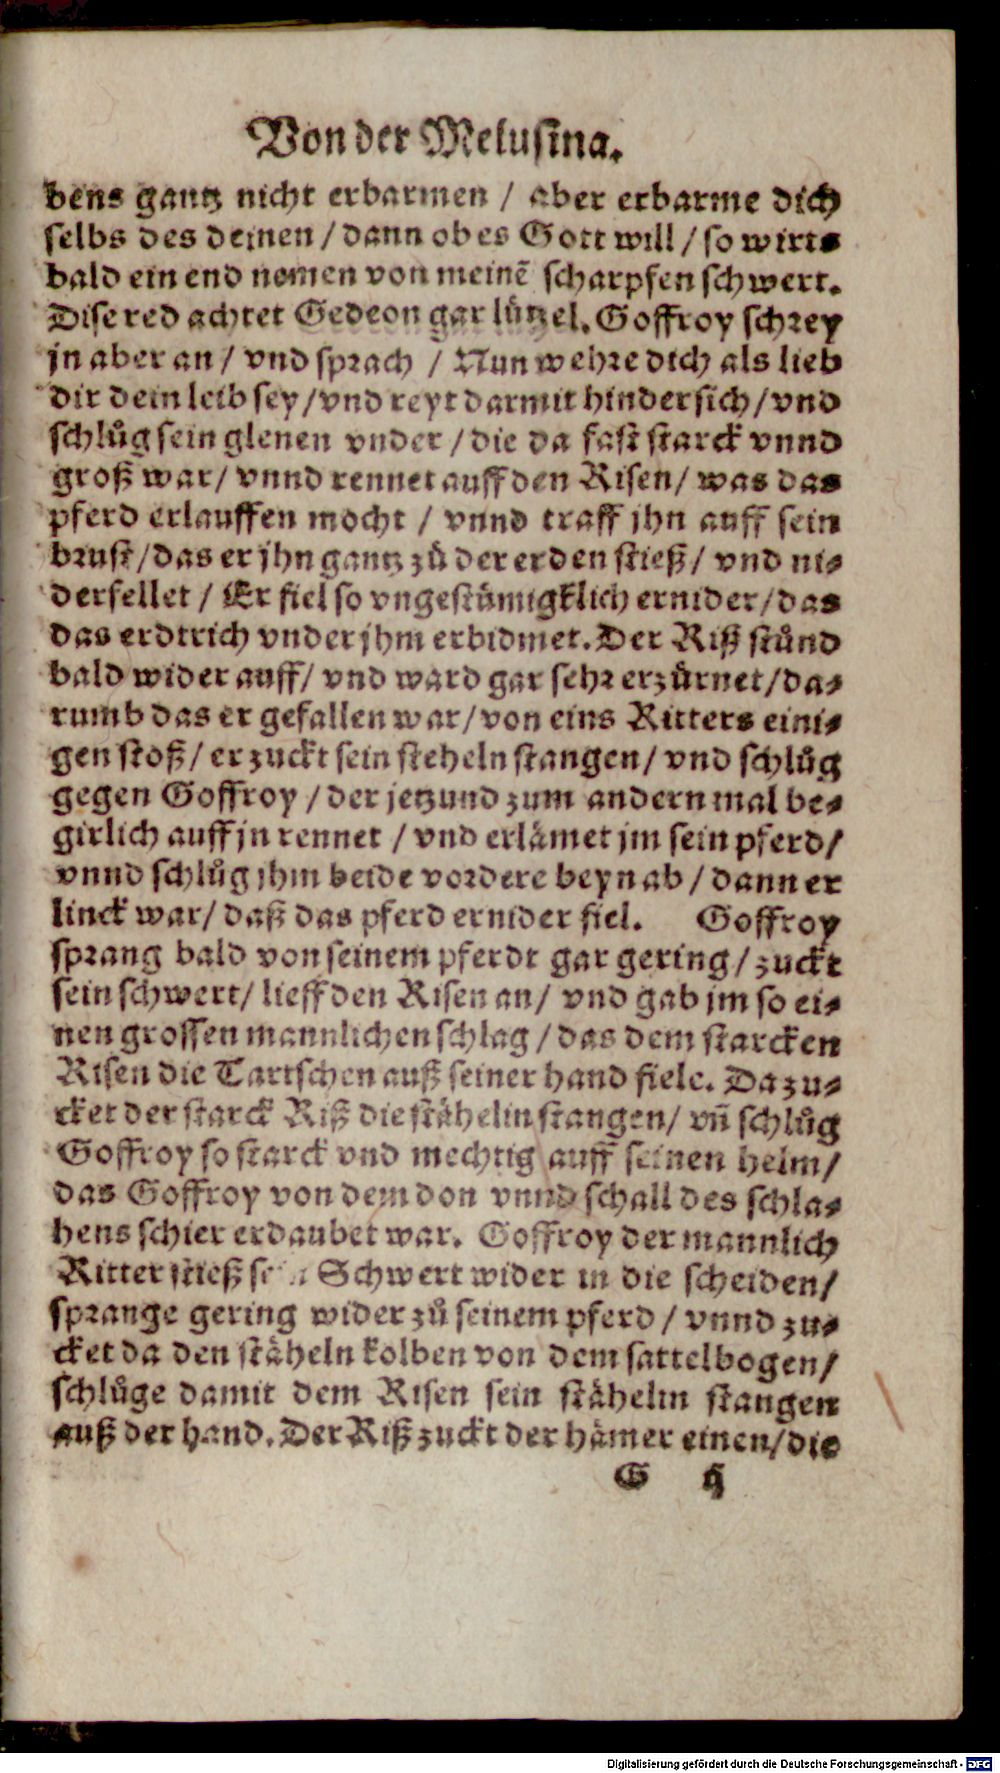 Von der Melusina.
bens gantz nicht erbarmen / aber erbarme dich
selbs des deinen / dann ob es Gott will / so wirts
bald ein end nemen von meinē scharpfen schwert.
Dise red achtet Gedeon gar lützel. Goffroy schrey
jn aber an / vnd sprach / Nun wehre dich als lieb
dir dein leib sey / vnd reyt darmit hindersich / vnd
schlůg sein glenen vnder / die da fast starck vnnd
groß war / vnnd rennet auff den Risen / was das
pferd erlauffen mocht / vnnd traff jhn auff sein
brust / das er jhn gantz zů der erden stieß / vnd ni-
derfellet / Er fiel so vngestümigklich ernider / das
das erdtrich vnder jhm erbidmet. Der Riß stůnd
bald wider auff / vnd ward gar sehr erzürnet / da-
rumb das er gefallen war / von eins Ritters eini-
gen stoß / er zuckt sein steheln stangen / vnd schlůg
gegen Goffroy / der jetzund zum andern mal be-
girlich auff jn rennet / vnd erlämet jm sein pferd /
vnnd schlůg jhm beide vordere beyn ab / dann er
linck war / daß das pferd ernider fiel. Goffroy
sprang bald von seinem pferdt gar gering / zuckt
sein schwert / lieff den Risen an / vnd gab jm so ei-
nen grossen mannlichen schlag / das dem starcken
Risen die Tartschen auß seiner hand fiele. Da zu-
cket der starck Riß die stähelin stangen / vn̄ schlůg
Goffroy so starck vnd mechtig auff seinen helm /
das Goffroy von dem don vnnd schall des schla-
hens schier erdaubet war. Goffroy der mannlich
Ritter stieß sein Schwert wider in die scheiden /
sprange gering wider zů seinem pferd / vnnd zu-
cket da den stäheln kolben von dem sattelbogen /
schlůge damit dem Risen sein stähelin stangen
auß der hand. Der Riß zuckt der hämer einen / die
G ij
Digitalisierung gefördert durch die Deutsche Forschungsgemeinschaft - DFG